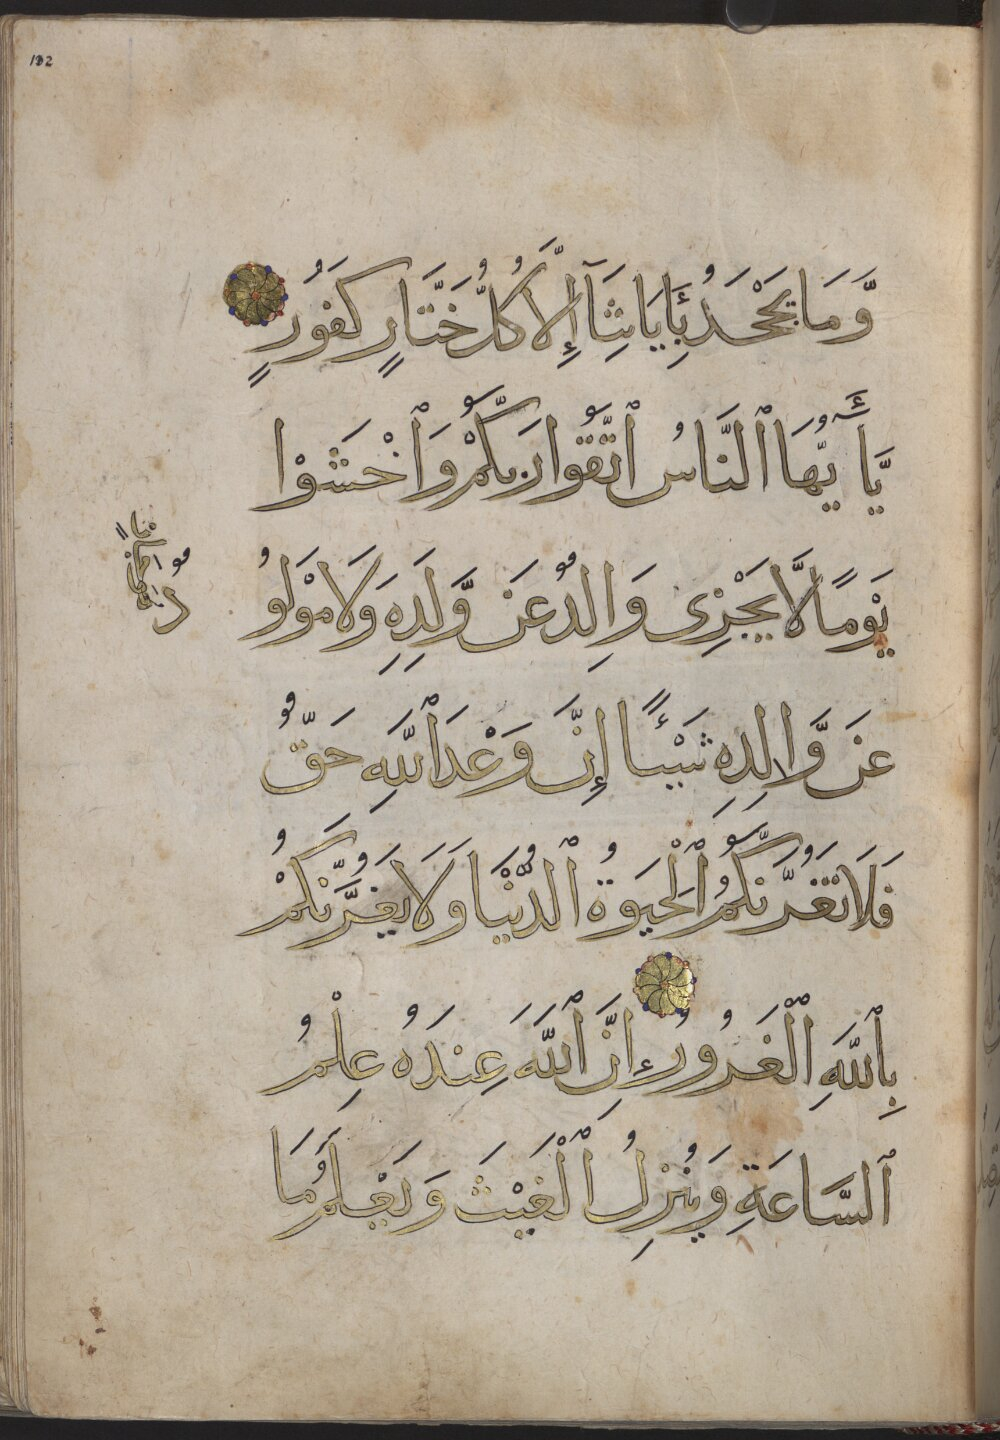 132
وَّمَا يَجْحَدُ بِـَٔايَاتِنَآ إِلَّا كُلُّ خَتَّارٍ كَفُورٍ
يَّـٰٓأَيُّهَا ٱلنَّاسُ ٱتَّقُوا رَبَّكُمْ وَٱخْشَوْا
يَوْمًا لَّا يَجْزِى وَالِدٌ عَن وَّلَدِهِ وَلَا مَوْلُو
دٌ هُوَ جَازٍ
عَن وَّالِدِهِ شَيْـًٔا إِنَّ وَعْدَ ٱللَّهِ حَقٌّ
فَلَا تَغُرَّنَّكُمُ ٱلْحَيَوٰةُ ٱلدُّنْيَا وَلَا يَغُرَّنَّكُمْ
بِٱللَّهِ ٱلْغَرُورُ إِنَّ ٱللَّهَ عِندَهُ عِلْمُ
ٱلسَّاعَةِ وَيُنَزِلُ ٱلْغَيْثَ وَيَعْلَمُ مَا